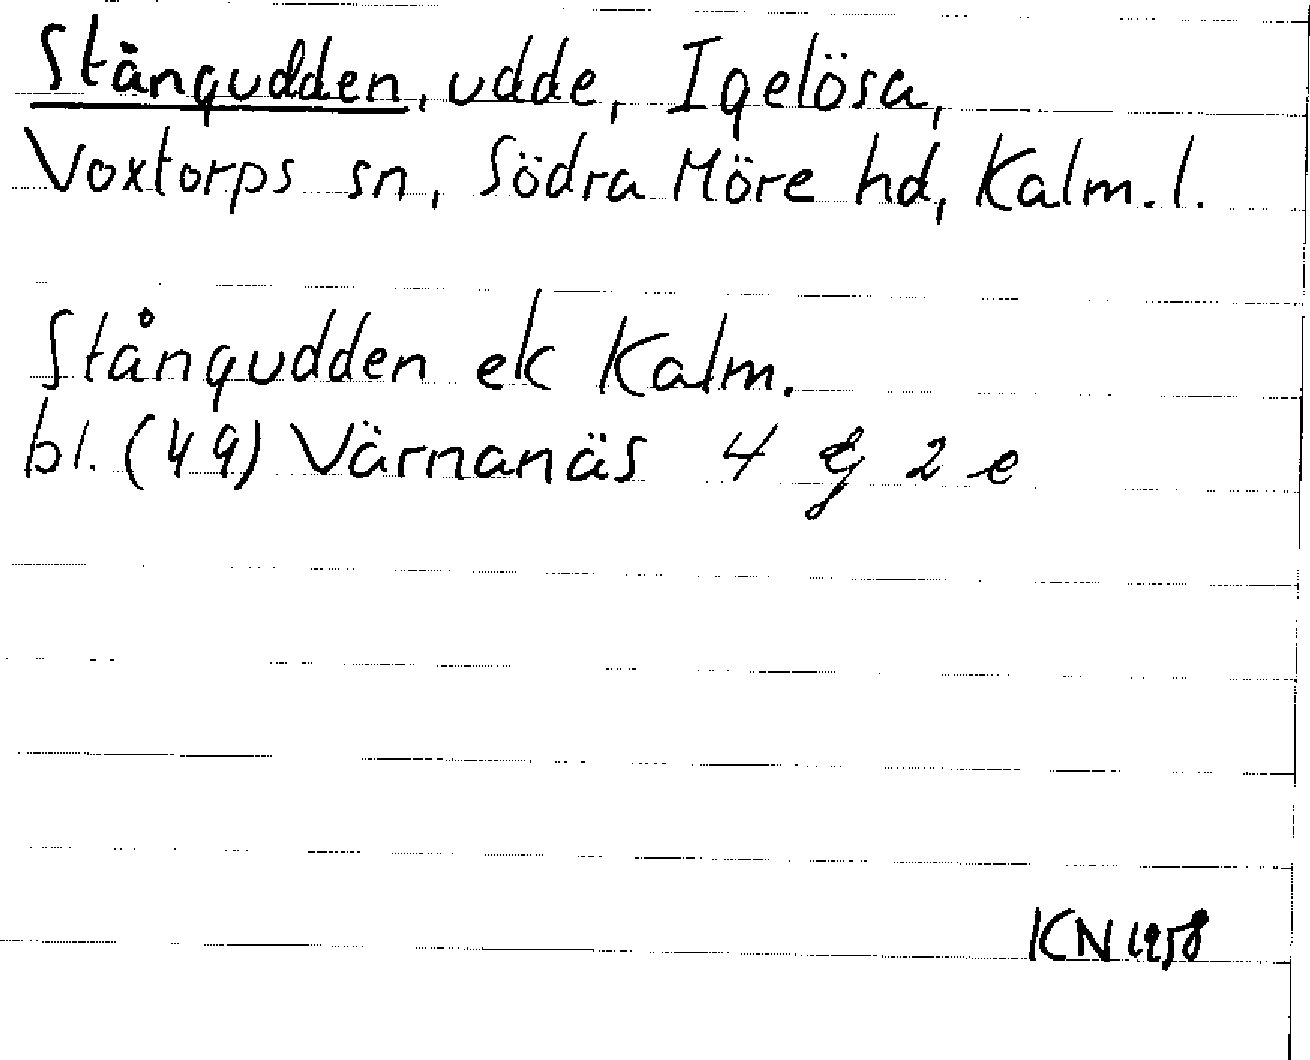 Stångudden, udde, Igelösa,
Voxtorps sn, Södra Möre hd, Kalm. l.
Stångudden ek Kalm.
bl. (49) Värnanäs 4 G 2 e
KN 1958